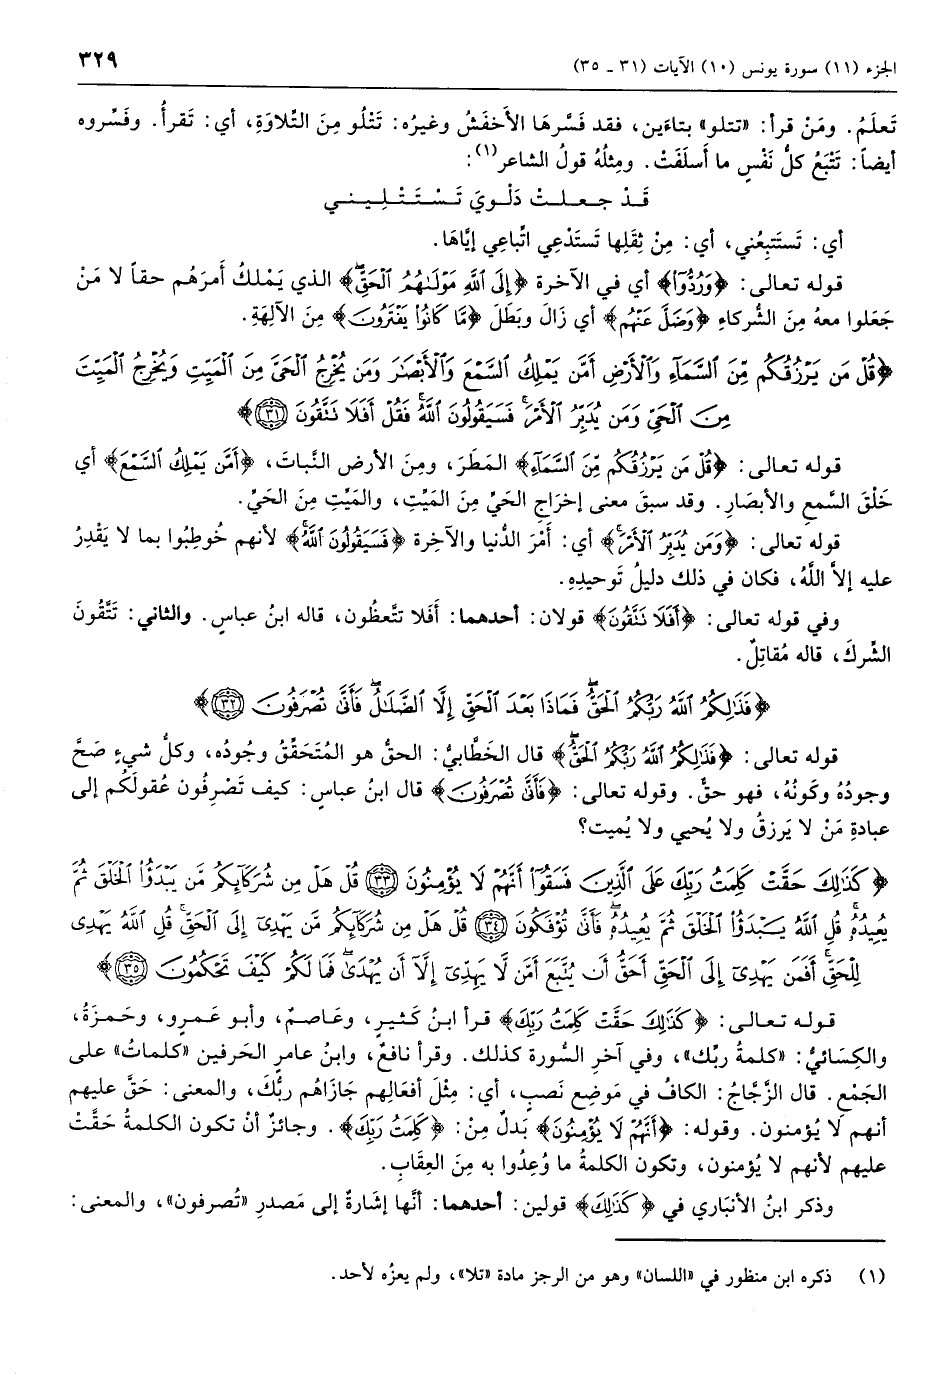 الجزء (١١) سورة يونس (١٠) الآيات (٣١ ـ ٣٥) ٣٢٩
تَعلَمُ. ومَنْ قرأ: «تتلو» بتاءَين، فقد فسَّرهَا الأخفَشُ وغيرُه: تَتْلُو مِنَ التِّلاوَةِ، أي: تَقرأُ. وفَسَّروه
أيضاً: تَتْبَعُ كلُّ نَفْسٍ ما أَسلَفَتْ. ومِثلُهُ قولُ الشاعر(١):
قَـدْ جـعـلـتْ دَلْـوِيَ تَـسْـتَـتْـلِـيـنـي
أي: تَستَتبِعُني، أي: مِنْ ثِقَلِها تَستَدْعِي اتِّباعِي إيَّاهَا.
قوله تعالى: ﴿وَرُدُّوٓا۟﴾ أي في الآخرة ﴿إِلَى ٱللَّهِ مَوْلَىٰهُمُ ٱلْحَقِّ﴾ الذي يَمْلكُ أَمرَهُم حقاً لا مَنْ
جَعَلوا معهُ مِنَ الشُّركاءِ ﴿وَضَلَّ عَنْهُم﴾ أي زَالَ وبَطَلَ ﴿مَّا كَانُوا۟ يَفْتَرُونَ﴾ مِنَ الآلِهَةِ.
﴿قُلْ مَن يَرْزُقُكُم مِّنَ ٱلسَّمَآءِ وَٱلْأَرْضِ أَمَّن يَمْلِكُ ٱلسَّمْعَ وَٱلْأَبْصَٰرَ وَمَن يُخْرِجُ ٱلْحَىَّ مِنَ ٱلْمَيِّتِ وَيُخْرِجُ ٱلْمَيِّتَ
مِنَ ٱلْحَىِّ وَمَن يُدَبِّرُ ٱلْأَمْرَ ۚ فَسَيَقُولُونَ ٱللَّهُ ۚ فَقُلْ أَفَلَا تَتَّقُونَ ٣١﴾
قوله تعالى: ﴿قُلْ مَن يَرْزُقُكُم مِّنَ ٱلسَّمَآءِ﴾ المَطَرَ، ومِنَ الأرض النَّباتَ، ﴿أَمَّن يَمْلِكُ ٱلسَّمْعَ﴾ أي
خَلْقَ السَّمعِ والأبصَارِ. وقد سبقَ معنى إخرَاجِ الحَيِّ مِنَ المَيِّتِ، والمَيِّتِ مِنَ الحَيِّ.
قوله تعالى: ﴿وَمَن يُدَبِّرُ ٱلْأَمْرَ ۚ﴾ أي: أَمْرَ الدُّنيا والآخِرة ﴿فَسَيَقُولُونَ ٱللَّهُ ۚ﴾ لأنهم خُوطِبُوا بما لا يَقْدِرُ
عليه إلاَّ اللَّهُ، فكان في ذلك دليلُ تَوحيدِهِ.
وفي قوله تعالى: ﴿أَفَلَا تَتَّقُونَ﴾ قولان: أحدهما: أَفَلا تتَّعظُون، قاله ابنُ عباسٍ. والثاني: تَتَّقُونَ
الشِّركَ، قاله مُقاتِلٌ.
﴿فَذَٰلِكُمُ ٱللَّهُ رَبُّكُمُ ٱلْحَقُّ ۖ فَمَاذَا بَعْدَ ٱلْحَقِّ إِلَّا ٱلضَّلَٰلُ ۖ فَأَنَّىٰ تُصْرَفُونَ ٣٢﴾
قوله تعالى: ﴿فَذَٰلِكُمُ ٱللَّهُ رَبُّكُمُ ٱلْحَقُّ ۖ﴾ قال الخَطَّابيُّ: الحقُّ هو المُتَحَقَّقُ وجُودُه، وكلُّ شيءٍ صَحَّ
وجودُهُ وكَونُهُ، فهو حقٌّ. وقوله تعالى: ﴿فَأَنَّىٰ تُصْرَفُونَ﴾ قال ابنُ عباسٍ: كيف تَصْرِفُون عُقولَكُم إلى
عبادةِ مَنْ لا يَرزقُ ولا يُحيي ولا يُميت؟
﴿كَذَٰلِكَ حَقَّتْ كَلِمَتُ رَبِّكَ عَلَى ٱلَّذِينَ فَسَقُوٓا۟ أَنَّهُمْ لَا يُؤْمِنُونَ ٣٣ قُلْ هَلْ مِن شُرَكَآئِكُم مَّن يَبْدَؤُا۟ ٱلْخَلْقَ ثُمَّ
يُعِيدُهُۥ ۚ قُلِ ٱللَّهُ يَبْدَؤُا۟ ٱلْخَلْقَ ثُمَّ يُعِيدُهُۥ ۖ فَأَنَّىٰ تُؤْفَكُونَ ٣٤ قُلْ هَلْ مِن شُرَكَآئِكُم مَّن يَهْدِىٓ إِلَى ٱلْحَقِّ ۚ قُلِ ٱللَّهُ يَهْدِى
لِلْحَقِّ ۗ أَفَمَن يَهْدِىٓ إِلَى ٱلْحَقِّ أَحَقُّ أَن يُتَّبَعَ أَمَّن لَّا يَهِدِّىٓ إِلَّآ أَن يُهْدَىٰ ۖ فَمَا لَكُمْ كَيْفَ تَحْكُمُونَ ٣٥﴾
قـولـه تـعـالـى: ﴿كَذَٰلِكَ حَقَّتْ كَلِمَتُ رَبِّكَ﴾ قرأ ابنُ كَثيرٍ، وعَاصمٌ، وأبو عَمرٍو، وحَمزَةُ،
والكِسَائيُّ: «كلمةُ ربِّك»، وفي آخرِ السُّورة كذلك. وقرأ نافعٌ، وابنُ عامرٍ الحَرفين «كلماتُ» على
الجَمْعِ. قال الزَّجَّاجُ: الكافُ في مَوضِع نَصبٍ، أي: مِثْلَ أفعَالِهِم جَازَاهُم ربُّكَ، والمعنى: حَقَّ عليهم
أنهم لا يُؤمنون. وقوله: ﴿أَنَّهُمْ لَا يُؤْمِنُونَ﴾ بَدلٌ مِنْ: ﴿كَلِمَتُ رَبِّكَ﴾. وجائزٌ أنْ تكون الكلمةُ حقَّتْ
عليهم لأنهم لا يُؤمنون، وتكون الكلمةُ ما وُعِدُوا به مِنَ العِقَابِ.
وذكر ابنُ الأنبَاري في ﴿كَذَٰلِكَ﴾ قولين: أحدهما: أنَّها إشَارةٌ إلى مَصدرِ «تُصرفون»، والمعنى:
(١) ذكره ابن منظور في «اللسان» وهو من الرجز مادة «تلا»، ولم يعزُه لأحد.